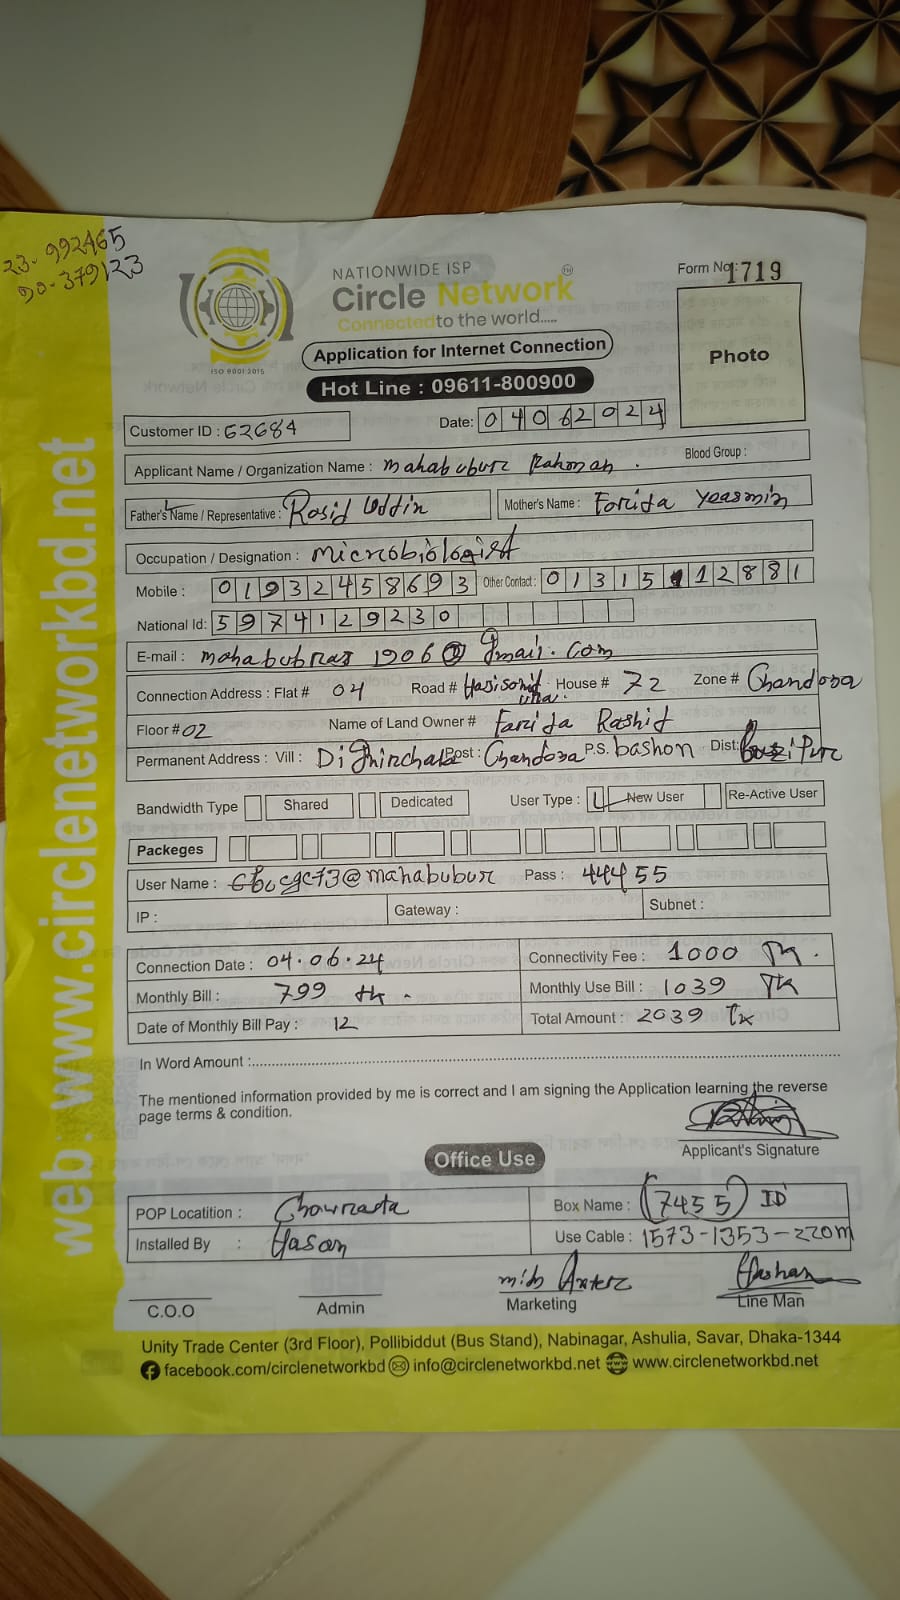 23-992465
90-379123
NATIONWIDE ISP
Circle Network
Connected to the world.....
ISO 9001:2015
Form No: 1719
Photo
Application for Internet Connection
Hot Line : 09611-800900
Customer ID : 62684
Date: 04062024
Applicant Name / Organization Name : mahabubur Rahman . Blood Group :
Father's Name / Representative : Rasid Uddin Mother's Name : Farida Yeasmin
Occupation / Designation : Microbiologist
Mobile : 01932458693 Other Contact : 01315112881
National Id: 5974129230
E-mail : mahabubraj1906@gmail.com
Connection Address : Flat # 04 Road # House # 72 Zone # Chandora
Floor # 02 Name of Land Owner # Farida Rashid
Permanent Address : Vill : Dighirchala Post : Chandora P.S. bashon Dist: Gazipur
Bandwidth Type Shared Dedicated User Type : New User Re-Active User
Packeges
User Name : @mahabubur Pass : 444455
IP : Gateway : Subnet :
Connection Date : 04.06.24 Connectivity Fee : 1000 Tk.
Monthly Bill : 799 tk. Monthly Use Bill : 1039 Tk
Date of Monthly Bill Pay : 12 Total Amount : 2039 Tk
In Word Amount :
The mentioned information provided by me is correct and I am signing the Application learning the reverse
page terms & condition.
Applicant's Signature
Office Use
POP Locatition : Chowrasta Box Name : (7455) ID
Installed By : Hasan Use Cable : 1573-1353-220m
C.O.O Admin Marketing Line Man
Unity Trade Center (3rd Floor), Pollibiddut (Bus Stand), Nabinagar, Ashulia, Savar, Dhaka-1344
facebook.com/circlenetworkbd info@circlenetworkbd.net www.circlenetworkbd.net
web: www.circlenetworkbd.net